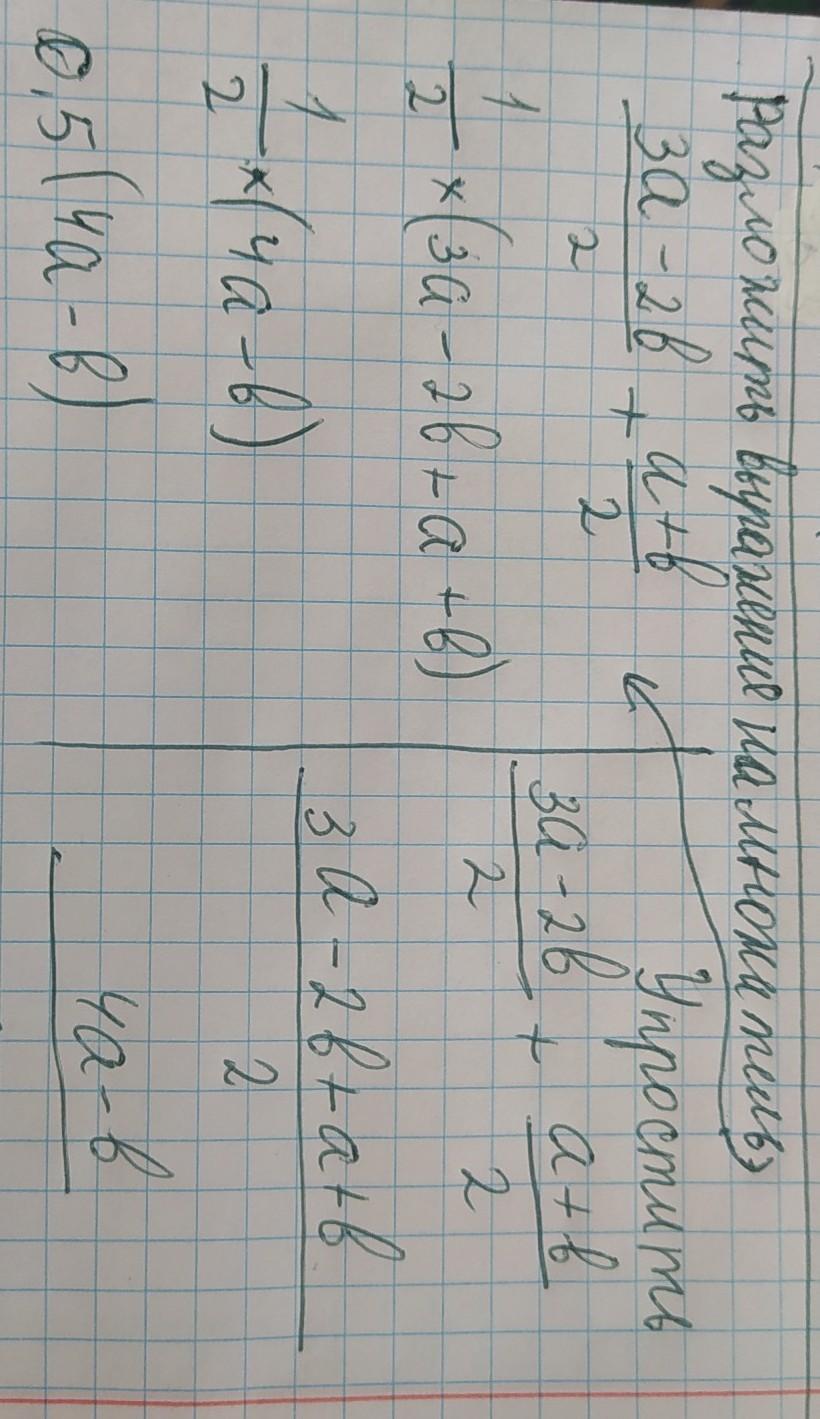 Разложить выражение на множитель)
3a - 2b / 2 + a + b / 2
1/2 × (3a - 2b + a + b)
1/2 × (4a - b)
0,5 (4a - b)
Упростить
3a - 2b / 2 + a + b / 2
3a - 2b + a + b / 2
4a - b